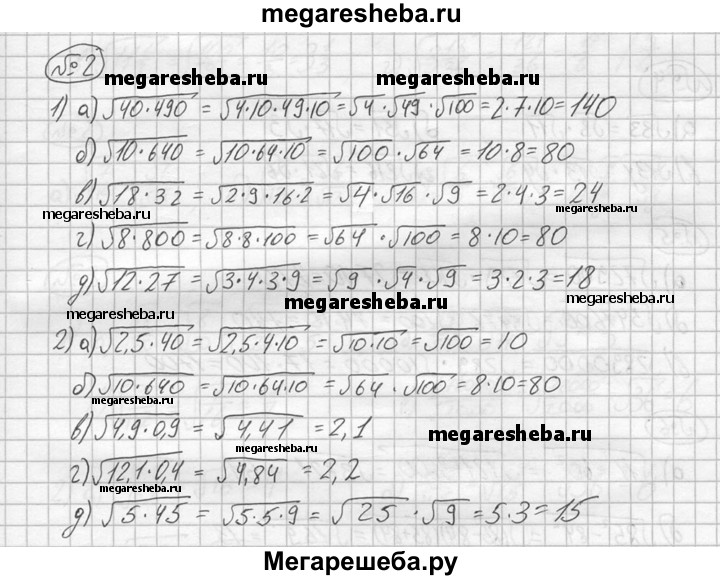 megaresheba.ru
№2
megaresheba.ru megaresheba.ru
1) а) √40·490 = √4·10·49·10 = √4 · √49 · √100 = 2·7·10 = 140
б) √10·640 = √10·64·10 = √100 · √64 = 10·8 = 80
в) √18·32 = √2·9·16·2 = √4 · √16 · √9 = 2·4·3 = 24
megaresheba.ru megaresheba.ru megaresheba.ru
г) √8·800 = √8·8·100 = √64 · √100 = 8·10 = 80
д) √12·27 = √3·4·3·9 = √9 · √4 · √9 = 3·2·3 = 18
megaresheba.ru megaresheba.ru megaresheba.ru
2) а) √2,5·40 = √2,5·4·10 = √10·10 = √100 = 10
б) √10·640 = √10·64·10 = √64 · √100 = 8·10 = 80
megaresheba.ru
в) √4,9·0,9 = √4,41 = 2,1
megaresheba.ru megaresheba.ru
г) √12,1·0,4 = √4,84 = 2,2
megaresheba.ru megaresheba.ru
д) √5·45 = √5·5·9 = √25 · √9 = 5·3 = 15
Мегарешеба.ру